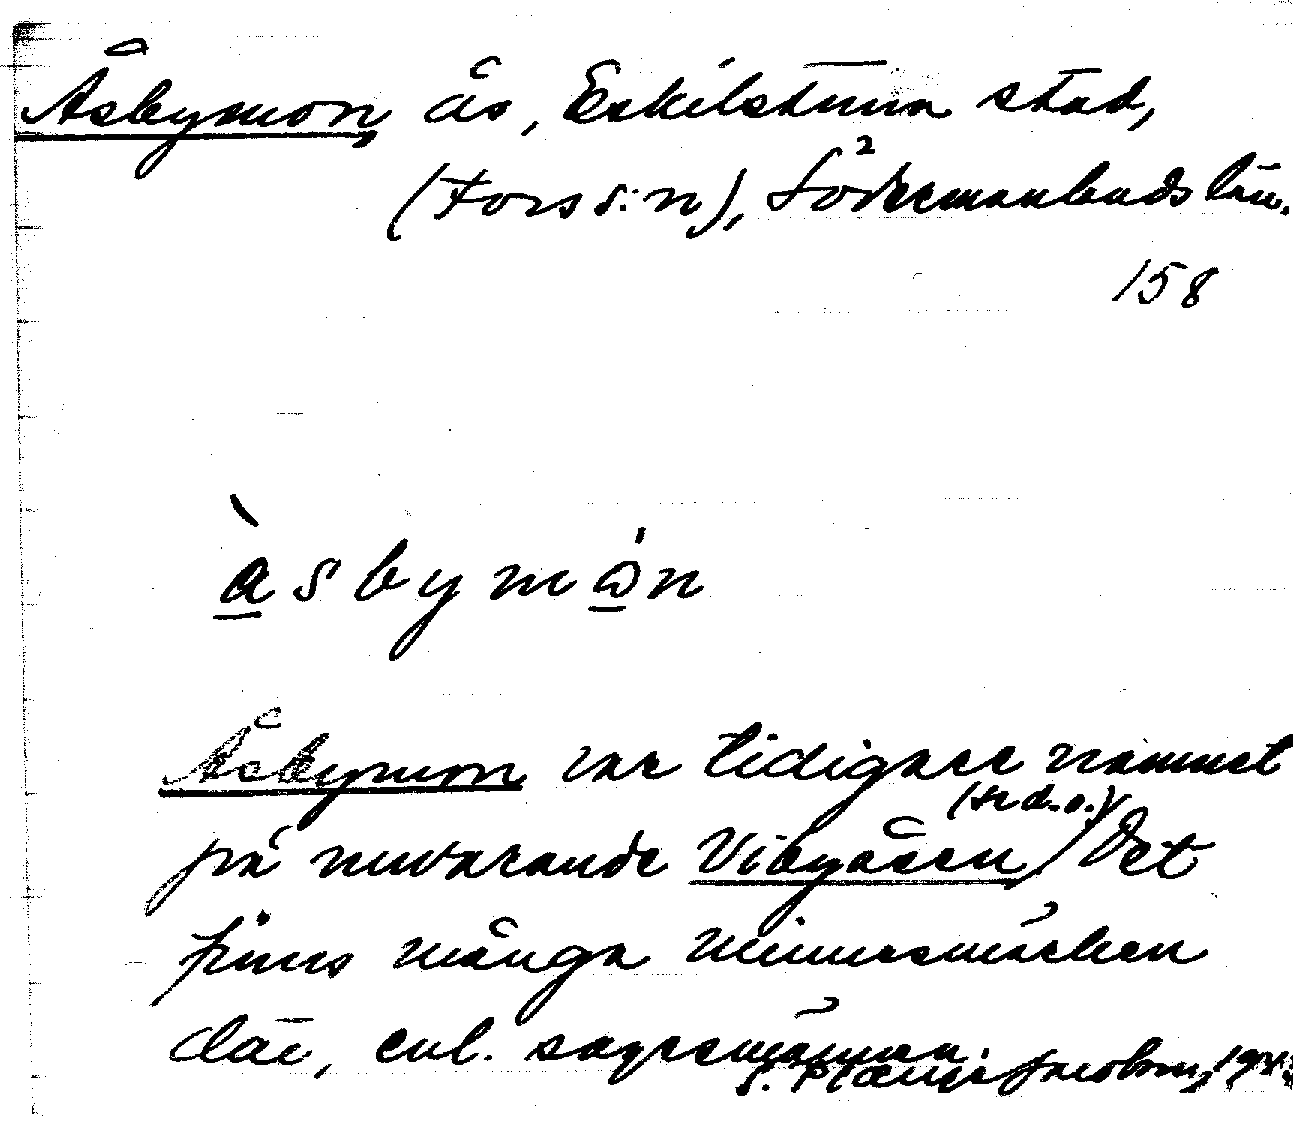 Åsbymon, ås, Eskilstuna stad,
(Fors s:n), Södermanlands län.
158
àsbymȯn
Åsbymon var tidigare namnet
på nuvarande Vibyåsen (se d.o.) Det
finns många minnesmärken
där, enl. sagesmannen.
S. Jacobson, 19